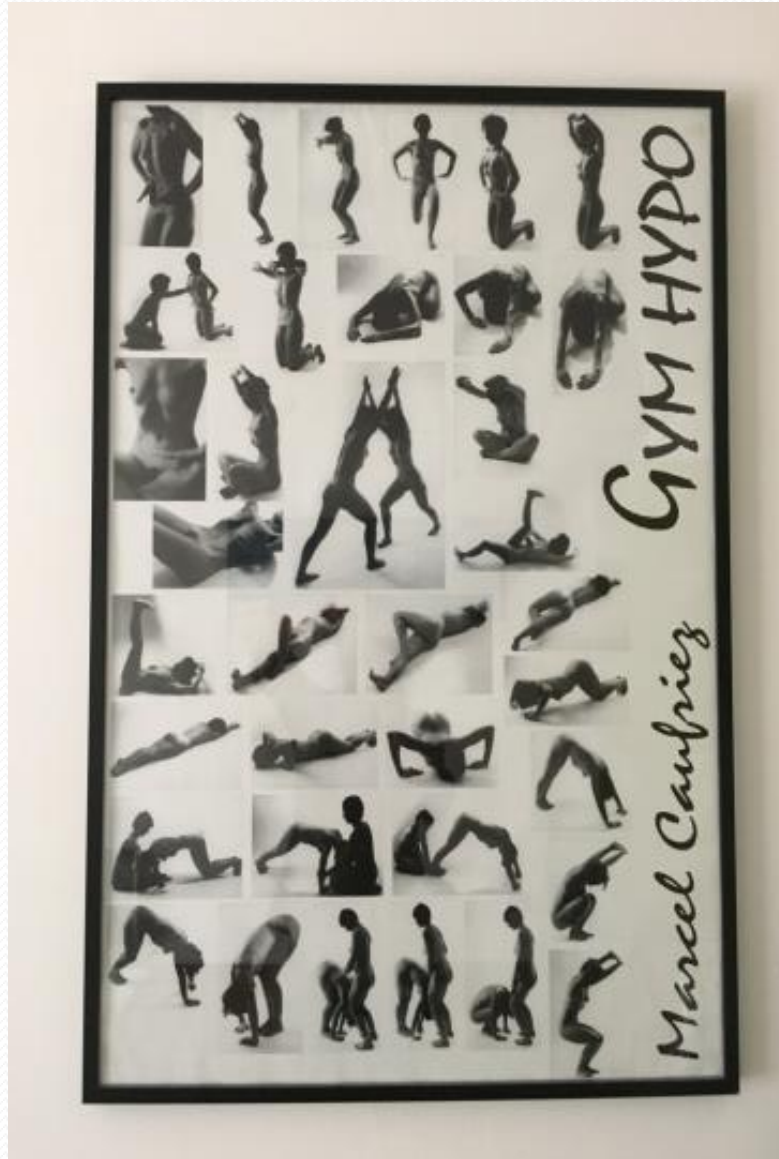 GYM HYPO
Marcel Caufriez